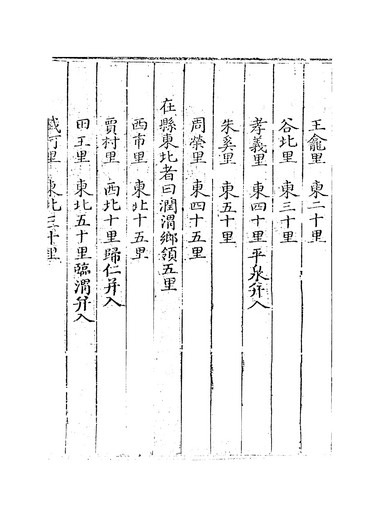 王龕里 東二十里
谷北里 東三十里
孝義里 東四十里平泉并入
朱奚里 東五十里
周縈里 東四十五里
在縣東北者曰潤渭鄉領五里
西市里 東北十五里
賈村里 西北十里歸仁并入
田王里 東北五十里臨渭并入
里 東北三十里